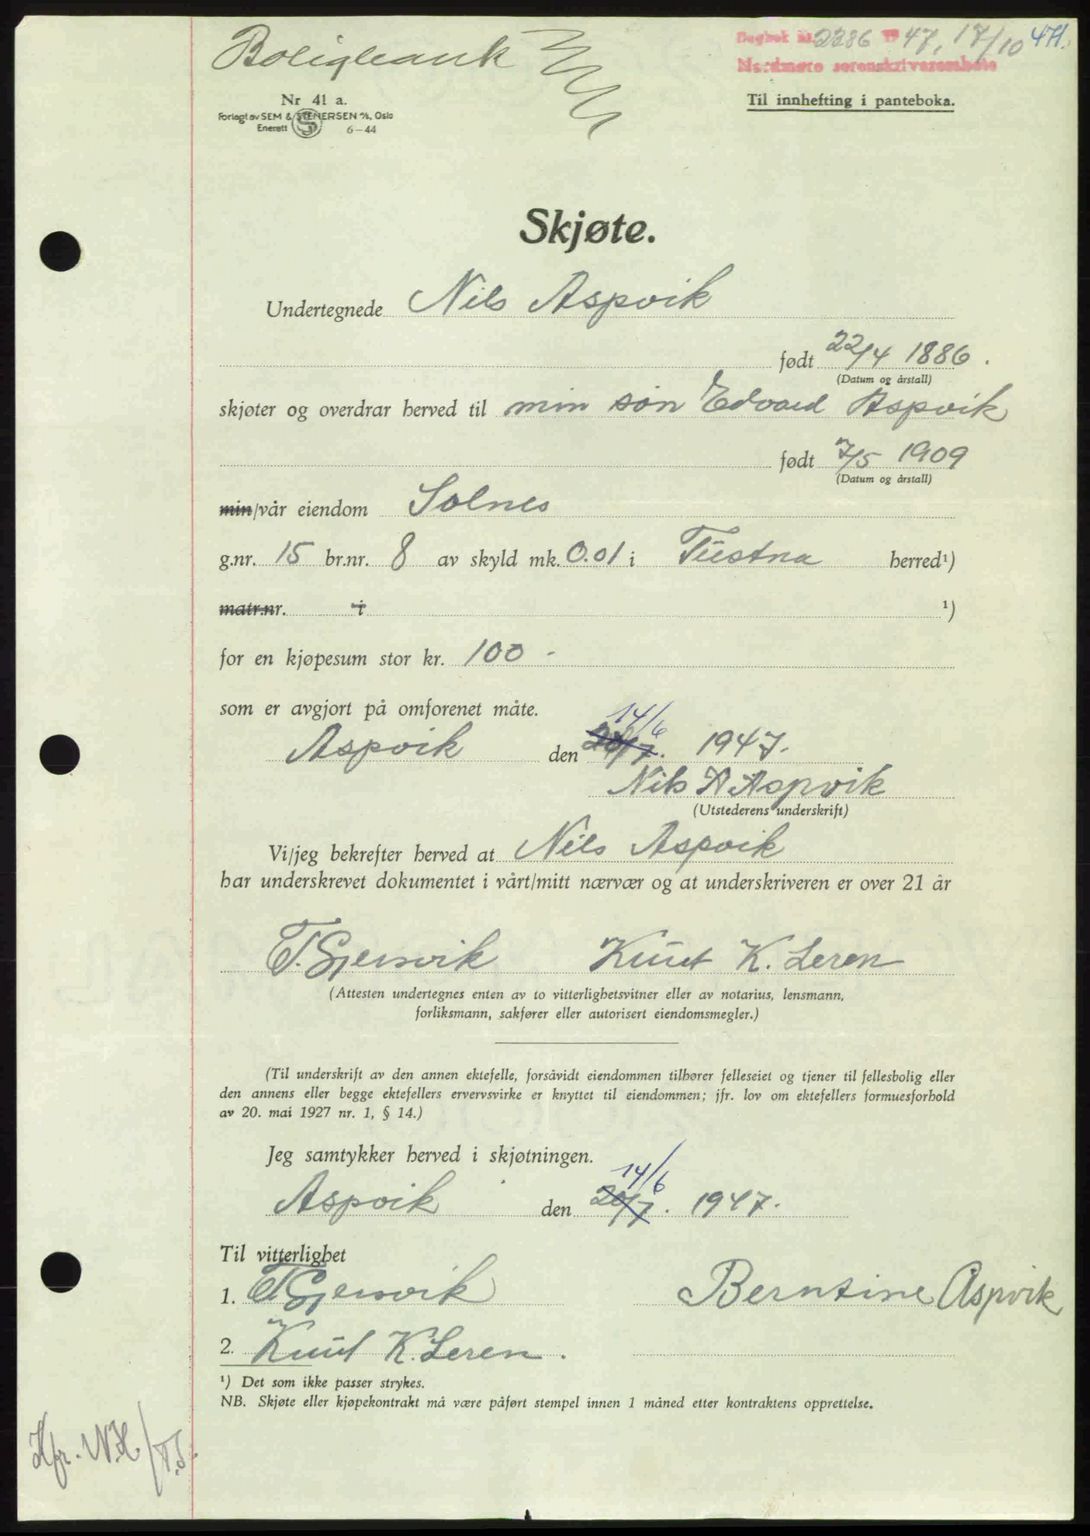 Boligbank
Dagbok nr. 2286 1947, 17/10 471.
Nordmøre sorenskriverembete
Nr 41 a.
Forlagt av SEM & STENERSEN A/S, Oslo
Enerett 6-44
Til innhefting i panteboka.
Skjøte.
Undertegnede Nils Aspvik
født 22/4 1886.
(Datum og årstall)
skjøter og overdrar herved til min søn Edvard Aspvik
født 7/5 1909
(Datum og årstall)
min/vår eiendom Solnes
g.nr. 15 br.nr. 8 av skyld mk. 0.01 i Tüstna herred¹)
matr.nr. i ¹)
for en kjøpesum stor kr. 100 -
som er avgjort på omforenet måte.
14/6
Aspvik den 20/7. 1947.
Nils A Aspvik
(Utstederens underskrift)
Vi/jeg bekrefter herved at Nils Aspvik
har underskrevet dokumentet i vårt/mitt nærvær og at underskriveren er over 21 år
T. Gjersvik Knut K. Leren
(Attesten undertegnes enten av to vitterlighetsvitner eller av notarius, lensmann,
forliksmann, sakfører eller autorisert eiendomsmegler.)
(Til underskrift av den annen ektefelle, forsåvidt eiendommen tilhører felleseiet og tjener til fellesbolig eller
den annens eller begge ektefellers ervervsvirke er knyttet til eiendommen; jfr. lov om ektefellers formuesforhold
av 20. mai 1927 nr. 1, § 14.)
Jeg samtykker herved i skjøtningen.
14/6
Aspvik den 20/7. 1947.
Til vitterlighet
1. T Gjersvik Berntine Aspvik
2. Knut K. Leren.
¹) Det som ikke passer strykes.
NB. Skjøte eller kjøpekontrakt må være påført stempel innen 1 måned etter kontraktens opprettelse.
Kfr. N.H/T.S.